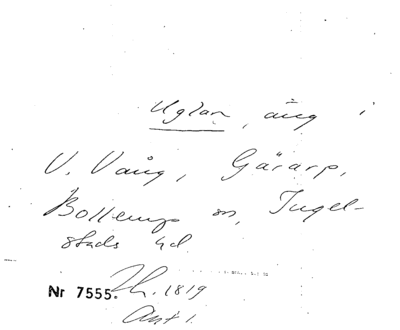 Uglan, äng i
V. Vång, Gärarp,
Bollerup sn, Ingel-
stads hd.
Nr 7555. Lh. 1819
Akt 1.